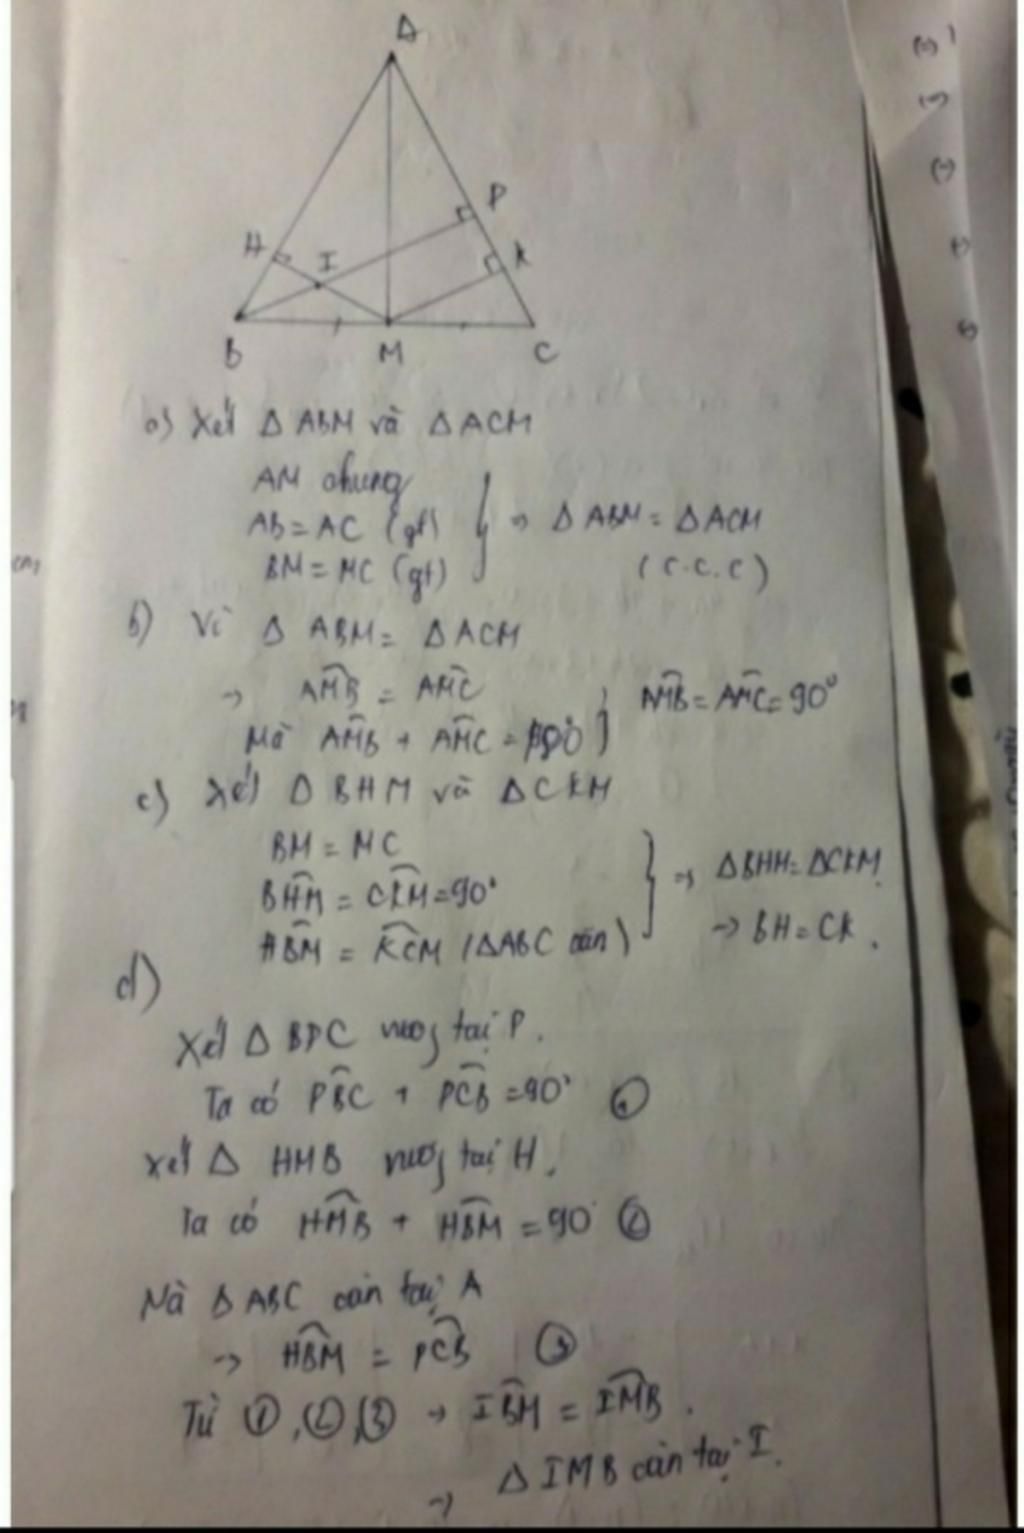 A
H
I
P
K
B
M
C
a) Xét Δ ABM và Δ ACM
AM chung
AB = AC (gt) } → Δ ABM = Δ ACM
BM = MC (gt) (c.c.c)
b) Vì Δ ABM = Δ ACM
→ AM̂B = AM̂C } AM̂B = AM̂C = 90°
Mà AM̂B + AM̂C = 180°
c) Xét Δ BHM và Δ CKM
BM = MC
BĤM = CK̂M = 90° } → ΔBHM = ΔCKM.
HB̂M = KĈM (ΔABC cân) → BH = CK.
d)
Xét Δ BPC vuông tại P.
Ta có PB̂C + PĈB = 90° ①
Xét Δ HMB vuông tại H.
Ta có HM̂B + HB̂M = 90° ②
Mà Δ ABC cân tại A
→ HB̂M = PĈB ③
Từ ①, ②, ③ → IB̂M = IM̂B.
→ Δ IMB cân tại I.